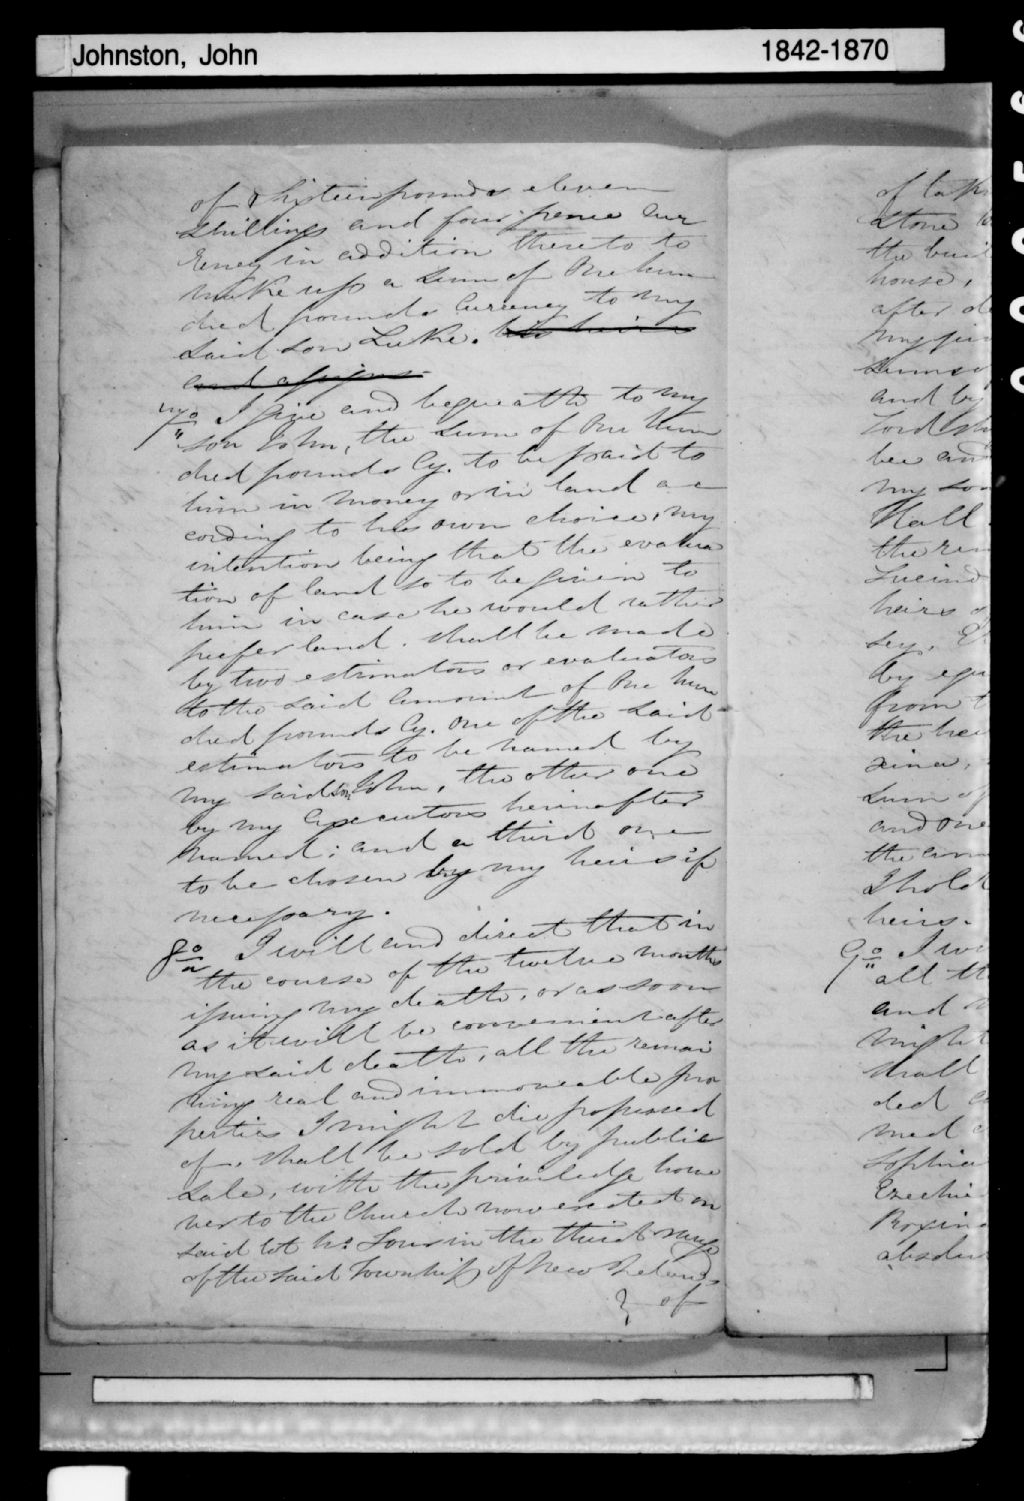 Johnston, John 1842-1870
of Sixteen pounds eleven
shillings and four pence Cur
rency in addition thereto to
make up a Sum of One hun
dred pounds Currency to my
said son Luke. his heirs
and assigns.
7o I give and bequeath to my
son John, the sum of One Hun
dred pounds Cy. to be paid to
him in money or in land ac
cording to his own choice, my
intention being that the evalua
tion of land so to be given to
him in case he would rather
prefer land. shall be made
by two estimators or evaluators
to the said Amount of One hun
dred pounds Cy. One of the said
estimators to be named by
my said son John, the other one
by my Executors hereinafter
named; and a third one
to be chosen by my heirs if
necessary.
8o I will and direct that in
the course of the twelve months
issuing my death, or as soon
as it will be convenient after
my said death, all the remai
ning real and immoveable pro
perties I might die possessed
of. shall be sold by public
Sale, with the priviledge howe
ver to the Church now erected on
said lot No Four in the third range
of the said Township of New Ireland
of
of
Stone
the buil
house,
after de
my
Sum
and by
Lord
bee and
my son
Shall
the rem
Lucind
heirs
sey,
by equ
from
the hei
xina,
Sum of
and one
the
I hold
heirs.
9o I wi
all th
and
might
shall
ded
med
Sophia
Ezechie
Roxin
absolu